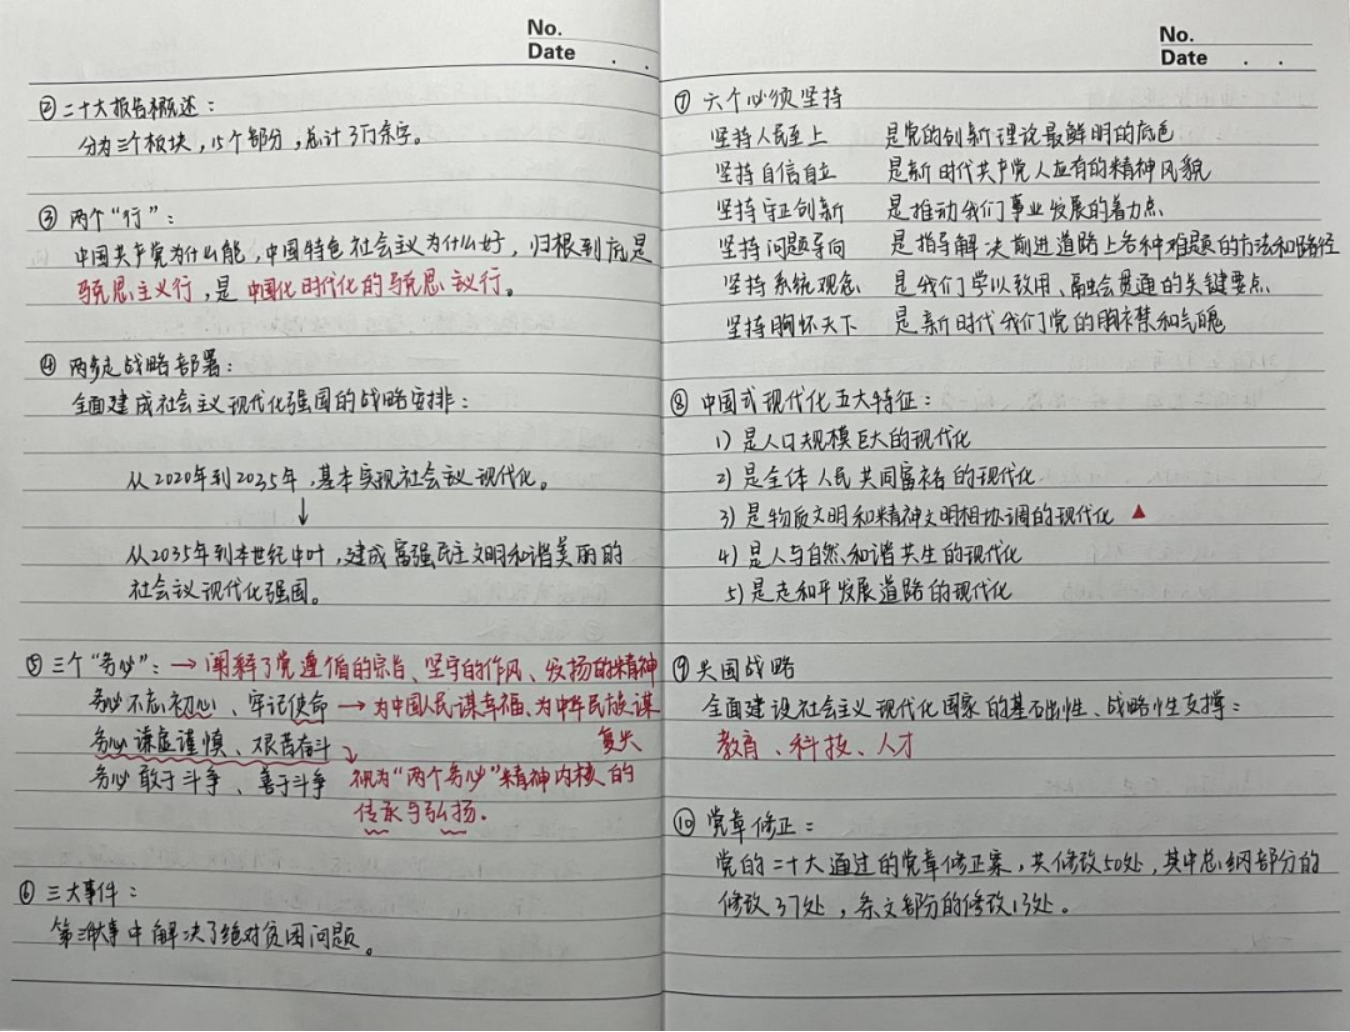 No.
Date . .
② 二十大报告概述：
分为三个板块，15个部分，总计3万余字。
③ 两个“行”：
中国共产党为什么能，中国特色社会主义为什么好，归根到底是
马克思主义行，是中国化时代化的马克思主义行。
④ 两步走战略部署：
全面建成社会主义现代化强国的战略安排：
从2020年到2035年，基本实现社会主义现代化。
↓
从2035年到本世纪中叶，建成富强民主文明和谐美丽的
社会主义现代化强国。
⑤ 三个“务必”：→ 阐释了党遵循的宗旨、坚守的作风、发扬的精神
务必不忘初心、牢记使命 → 为中国人民谋幸福、为中华民族谋
复兴
务必谦虚谨慎、艰苦奋斗
务必敢于斗争、善于斗争 视为“两个务必”精神内核的
传承与弘扬.
⑥ 三大事件：
第三件大事中解决了绝对贫困问题。
No.
Date . .
⑦ 六个必须坚持
坚持人民至上 是党的创新理论最鲜明的底色
坚持自信自立 是新时代共产党人应有的精神风貌
坚持守正创新 是推动我们事业发展的着力点
坚持问题导向 是指导解决前进道路上各种难题的方法和路径
坚持系统观念 是我们学以致用、融会贯通的关键要点
坚持胸怀天下 是新时代我们党的胸襟和气魄
⑧ 中国式现代化五大特征：
1) 是人口规模巨大的现代化
2) 是全体人民共同富裕的现代化
3) 是物质文明和精神文明相协调的现代化 ▲
4) 是人与自然和谐共生的现代化
5) 是走和平发展道路的现代化
⑨ 兴国战略
全面建设社会主义现代化国家的基础性、战略性支撑：
教育、科技、人才
⑩ 党章修正：
党的二十大通过的党章修正案，共修改50处，其中总纲部分的
修改37处，条文部分的修改13处。